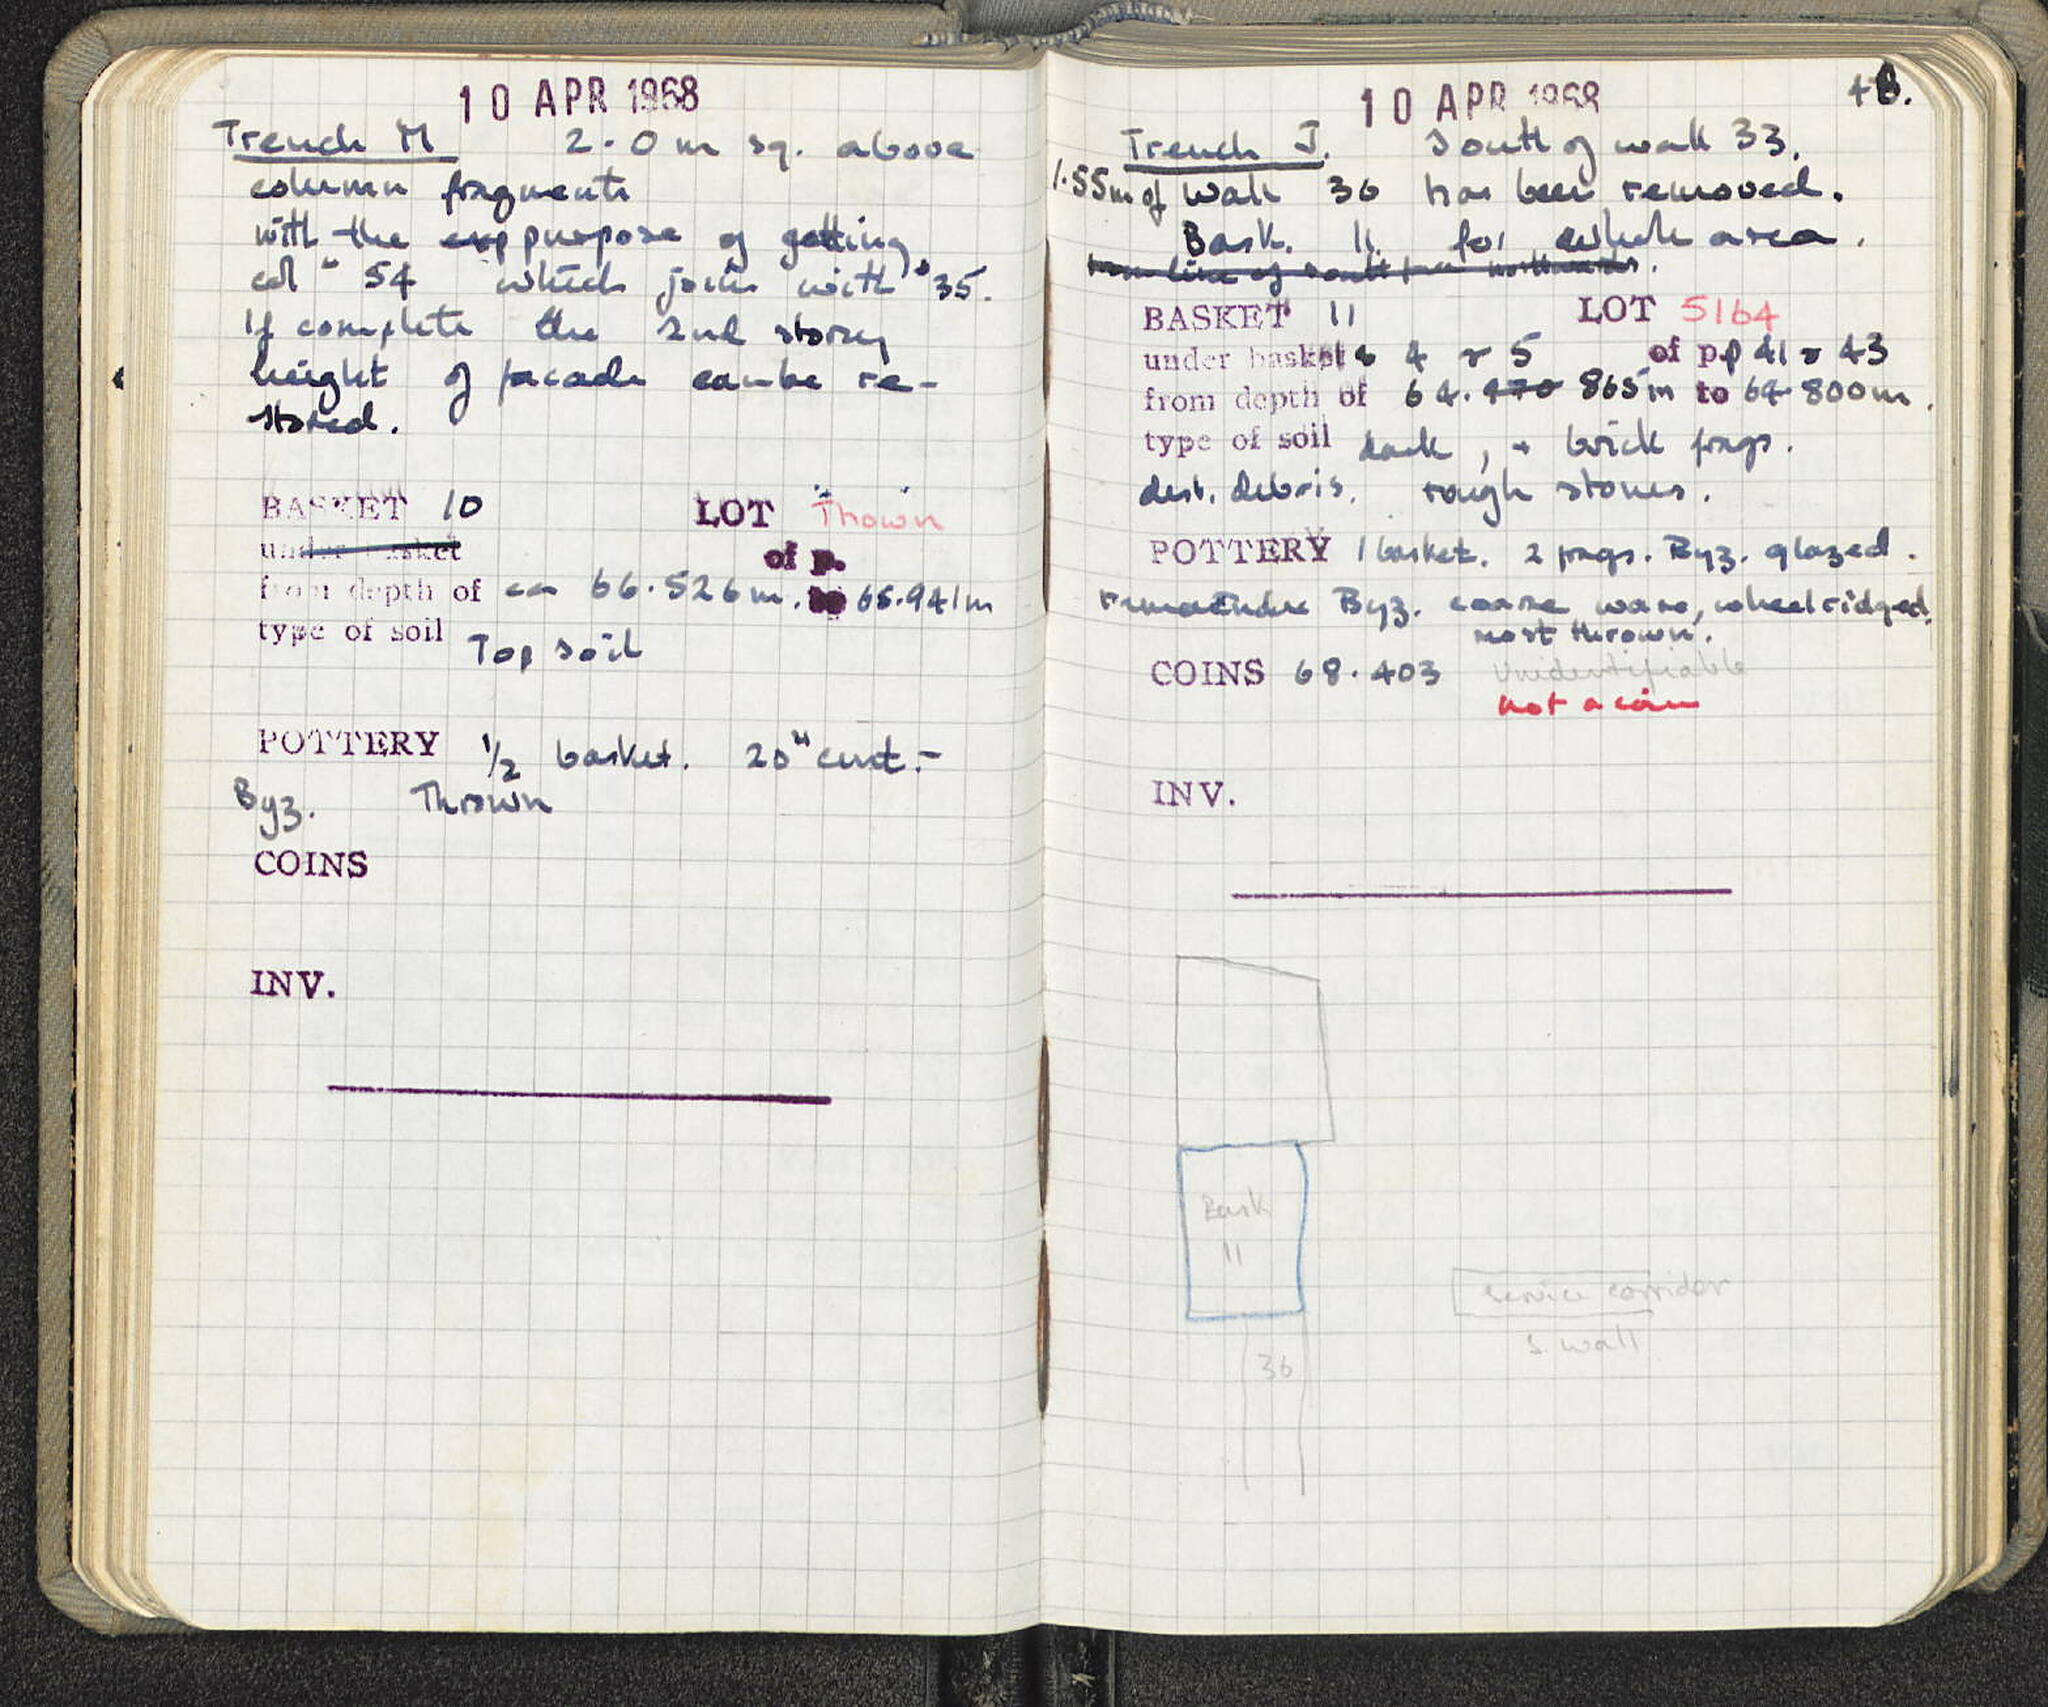 10 APR 1968
Trench M 2.0 m sq. above
column fragments
with the exp purpose of getting
col " 54 which joins with " 35.
If complete the 2nd storey
height of facade can be re-
stored.
BASKET 10 LOT Thown
under basket of p.
from depth of ca 66.526 m. to 65.941m
type of soil Top soil
POTTERY 1/2 basket. 20" cent.-
Byz. Thrown
COINS
INV.
10 APR 1968 48.
Trench J. South of wall 33.
1.55m of Wall 36 has been removed.
Bask. 11. for whole area.
from line of south northwards.
BASKET 11 LOT 5164
under baskets 4 & 5 of pp 41 & 43
from depth of 64.470 865m to 64.800m.
type of soil dark, + brick frags.
dest. debris. rough stones.
POTTERY 1 basket. 2 frags. Byz. glazed.
remainder Byz. coarse ware, wheelridged,
most thrown.
COINS 68.403 Unidentifiable
not a coin
INV.
Bask
11
service corridor
S. wall
36